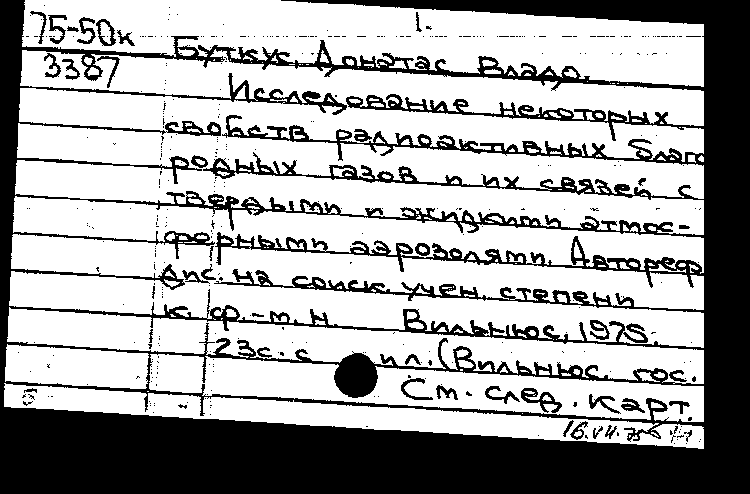 1.
75-50к
3387
Буткус, Донатас Владо.
Исследование некоторых
свойств радиоактивных благо
родных газов и их связей с
твердыми и жидкими атмос-
ферными аэрозолями. Автореф
дис. на соиск. учен. степени
к. ф.-м. н. Вильнюс, 1975.
23с. с ил. (Вильнюс. гос.
См. след. карт.
Б
16.VII.75